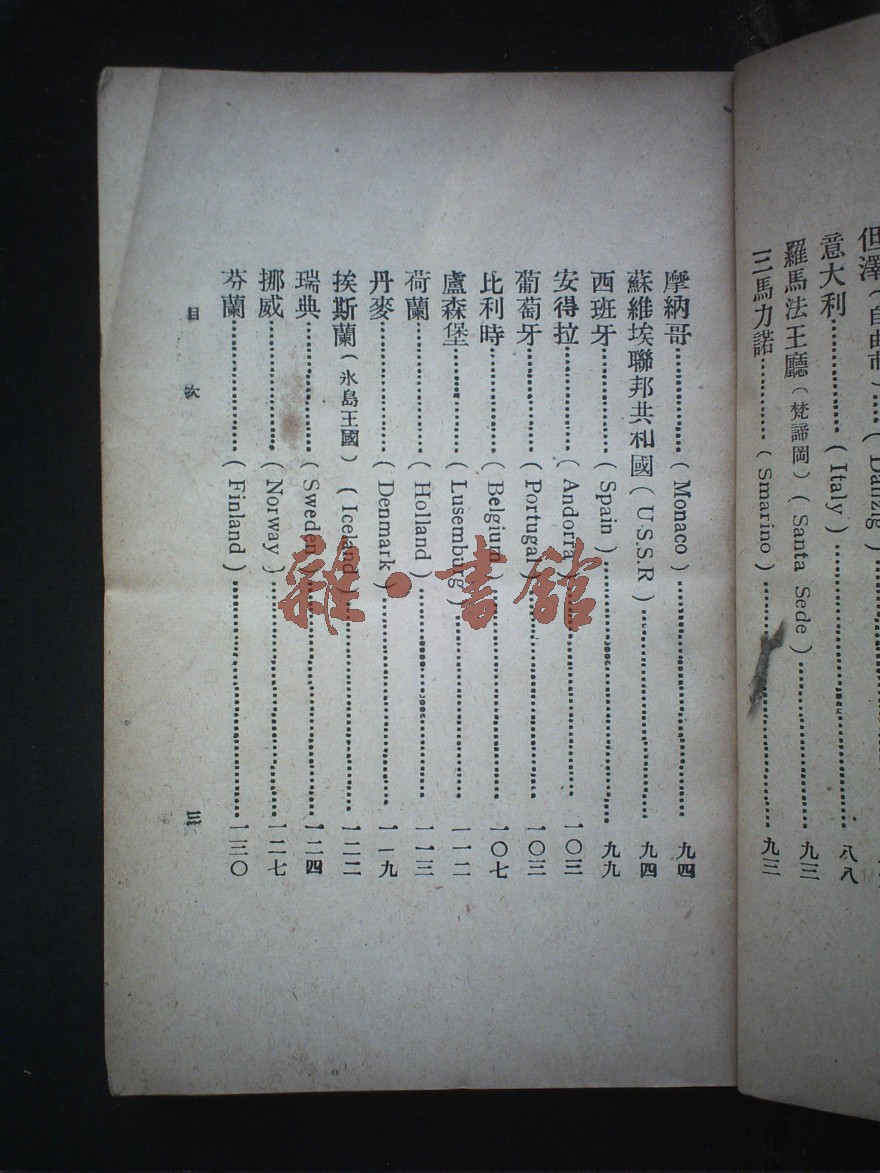 但澤（自由市）……（Danzig）
意大利……（Italy）……八八
羅馬法王廳（梵諦岡）（Santa Sede）……九三
三馬力諾……（Smarino）……九三
摩納哥……（Monaco）……九四
蘇維埃聯邦共和國（U.S.S.R）……九四
西班牙……（Spain）……九九
安得拉……（Andorra）……一〇三
葡萄牙……（Portugal）……一〇三
比利時……（Belgiurd）……一〇七
盧森堡……（Lusemburg）……一一二
荷蘭……（Holland）……一一三
丹麥……（Denmark）……一一九
挨斯蘭（氷島王國）（Iceland）……一二二
瑞典……（Sweden）……一二四
挪威……（Norway）……一二七
芬蘭……（Finland）……一三〇
目次 三
雜·書館